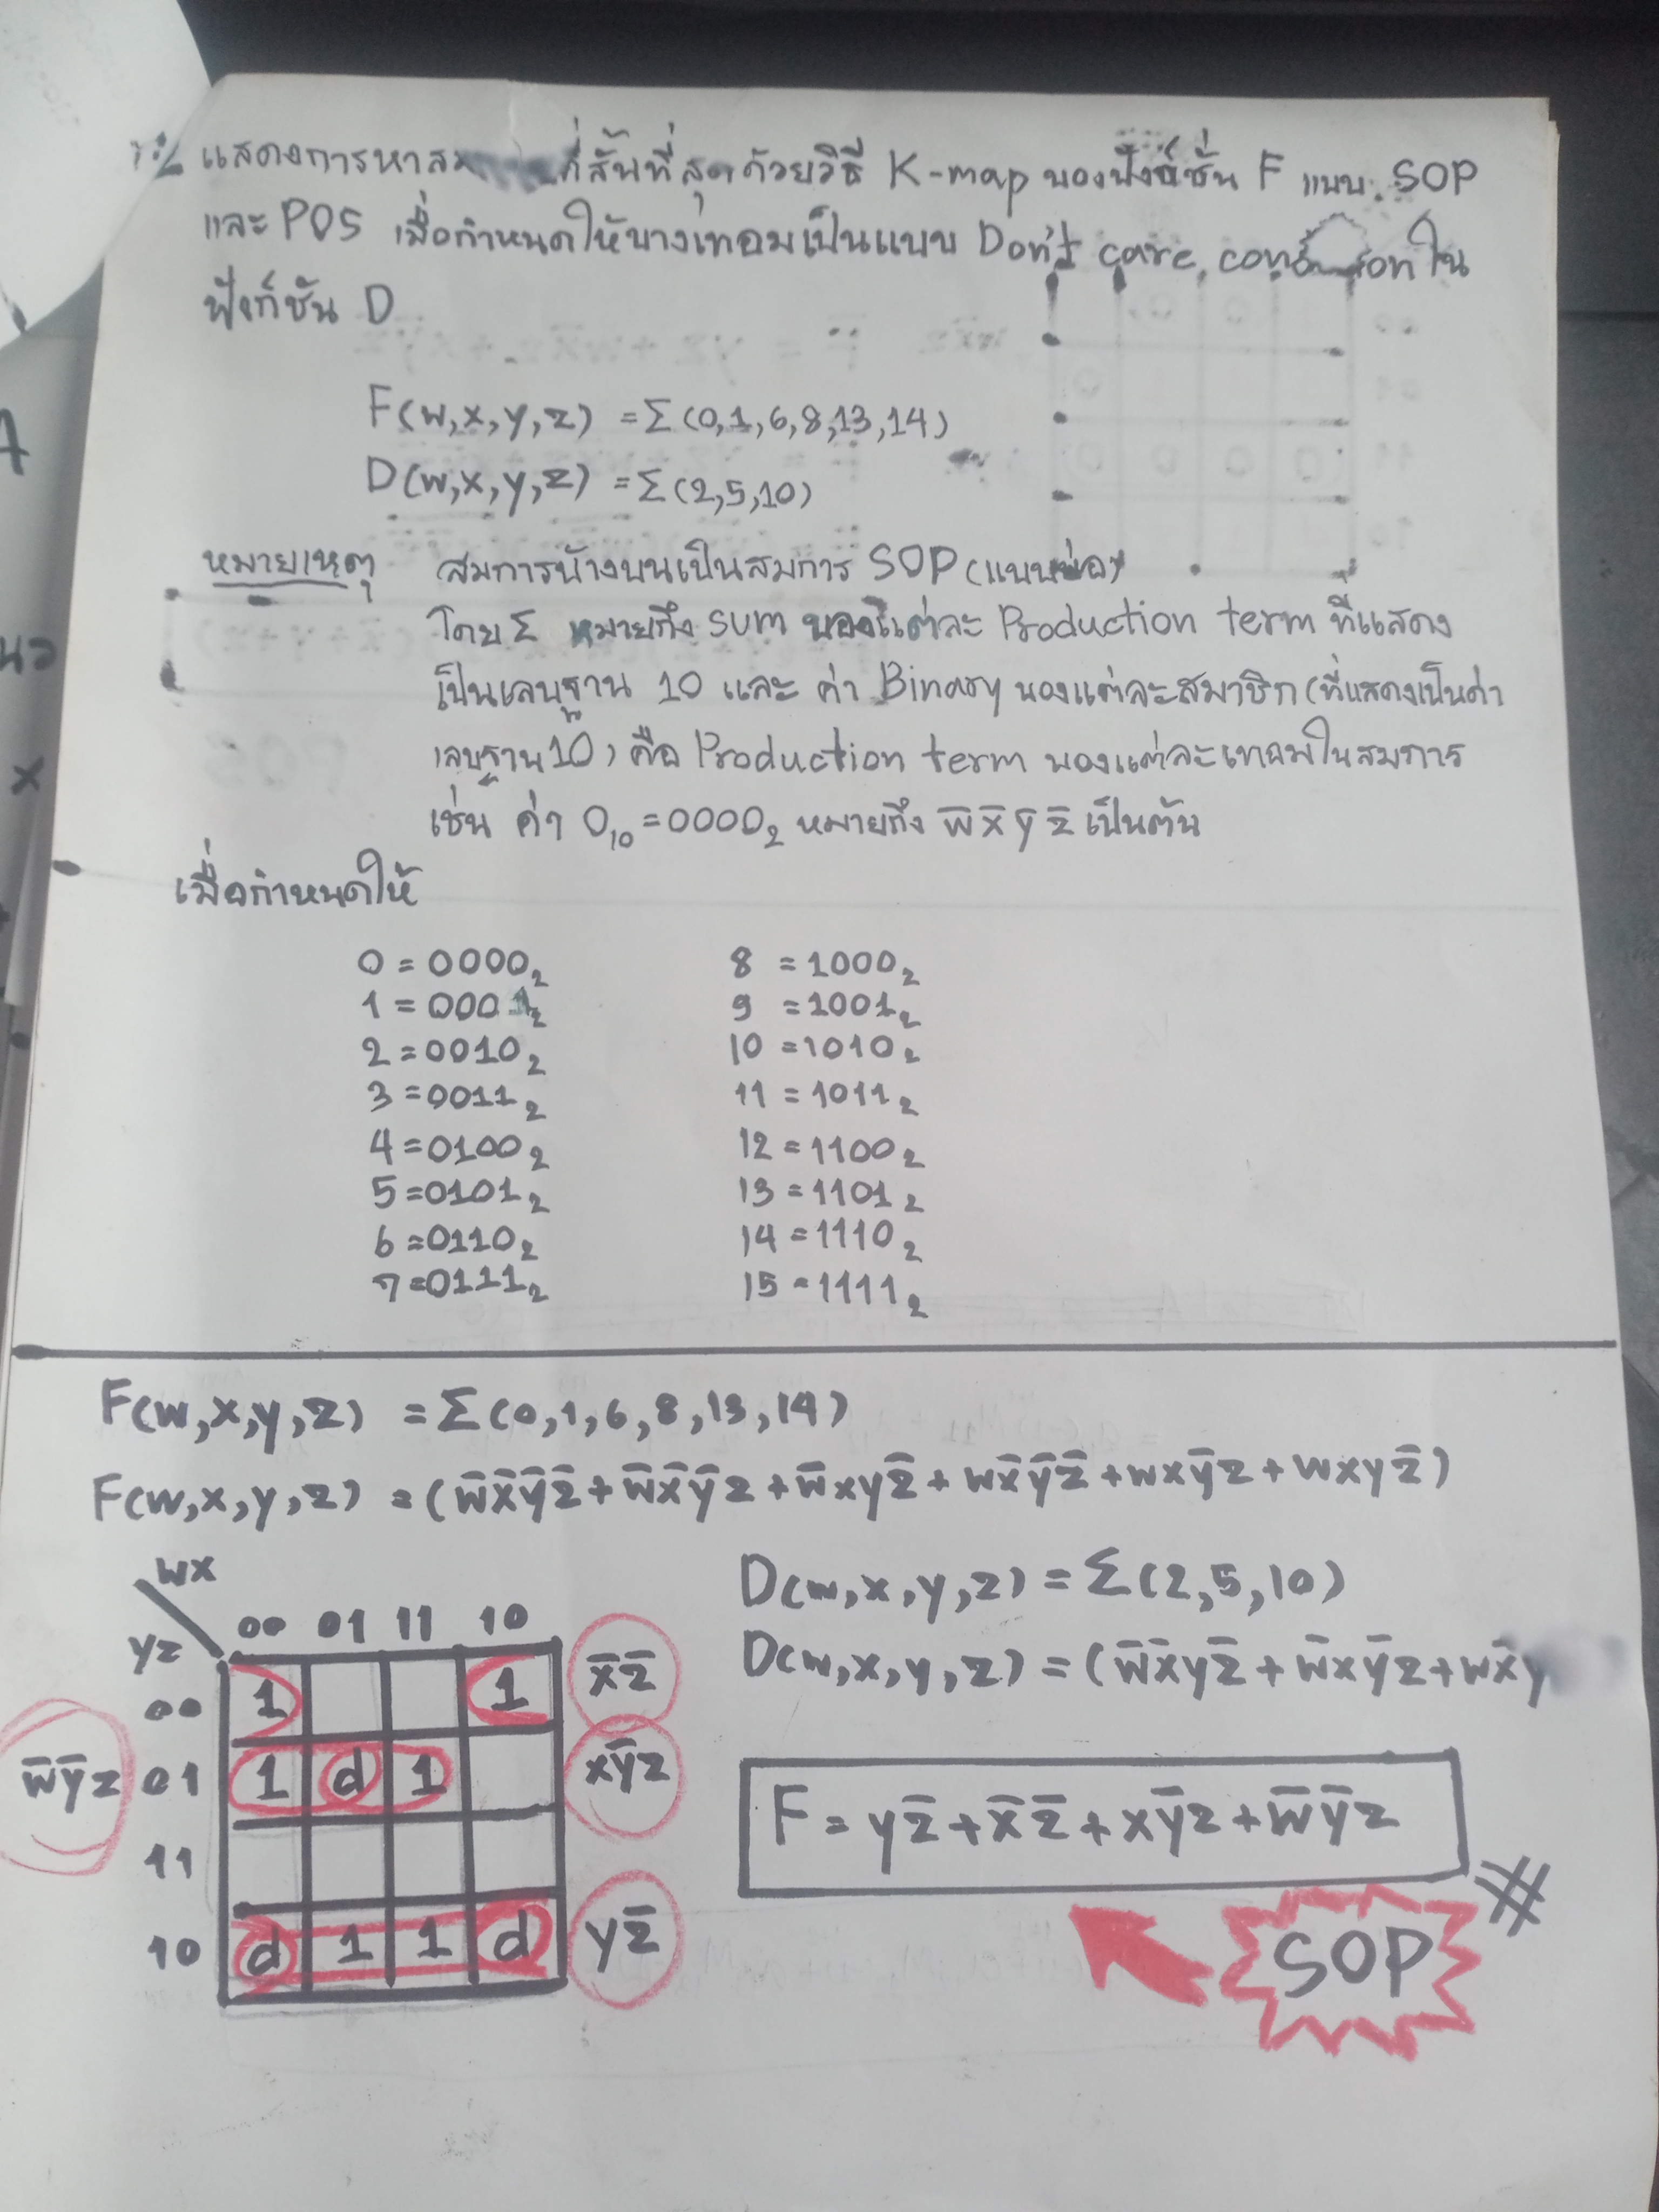 แสดงการหาสม ที่สั้นที่สุดด้วยวิธี K-map ของฟังก์ชั่น F แบบ SOP
และ POS เมื่อกำหนดให้บางเทอมเป็นแบบ Don't care condition ใน
ฟังก์ชัน D
F(w,x,y,z) = Σ(0,1,6,8,13,14)
D(w,x,y,z) = Σ(2,5,10)
หมายเหตุ สมการข้างบนเป็นสมการ SOP (แบบย่อ)
โดย Σ หมายถึง sum ของแต่ละ Production term ที่แสดง
เป็นเลขฐาน 10 และ ค่า Binary ของแต่ละสมาชิก (ที่แสดงเป็นค่า
เลขฐาน 10) คือ Production term ของแต่ละเทอมในสมการ
เช่น ค่า 0₁₀ = 0000₂ หมายถึง w̅ x̅ y̅ z̅ เป็นต้น
เมื่อกำหนดให้
0 = 0000₂ 8 = 1000₂
1 = 0001₂ 9 = 1001₂
2 = 0010₂ 10 = 1010₂
3 = 0011₂ 11 = 1011₂
4 = 0100₂ 12 = 1100₂
5 = 0101₂ 13 = 1101₂
6 = 0110₂ 14 = 1110₂
7 = 0111₂ 15 = 1111₂
F(w,x,y,z) = Σ(0,1,6,8,13,14)
F(w,x,y,z) = (w̅x̅y̅z̅ + w̅x̅y̅z + w̅xyz̅ + wx̅y̅z̅ + wxy̅z + wxyz̅)
D(w,x,y,z) = Σ(2,5,10)
D(w,x,y,z) = (w̅x̅yz̅ + w̅xy̅z + wx̅y
wx
yz 00 01 11 10
00 1 1 x̅z̅
w̅y̅z 01 1 d 1 xy̅z
11
10 d 1 1 d yz̅
F = yz̅ + x̅z̅ + xy̅z + w̅y̅z
#
SOP